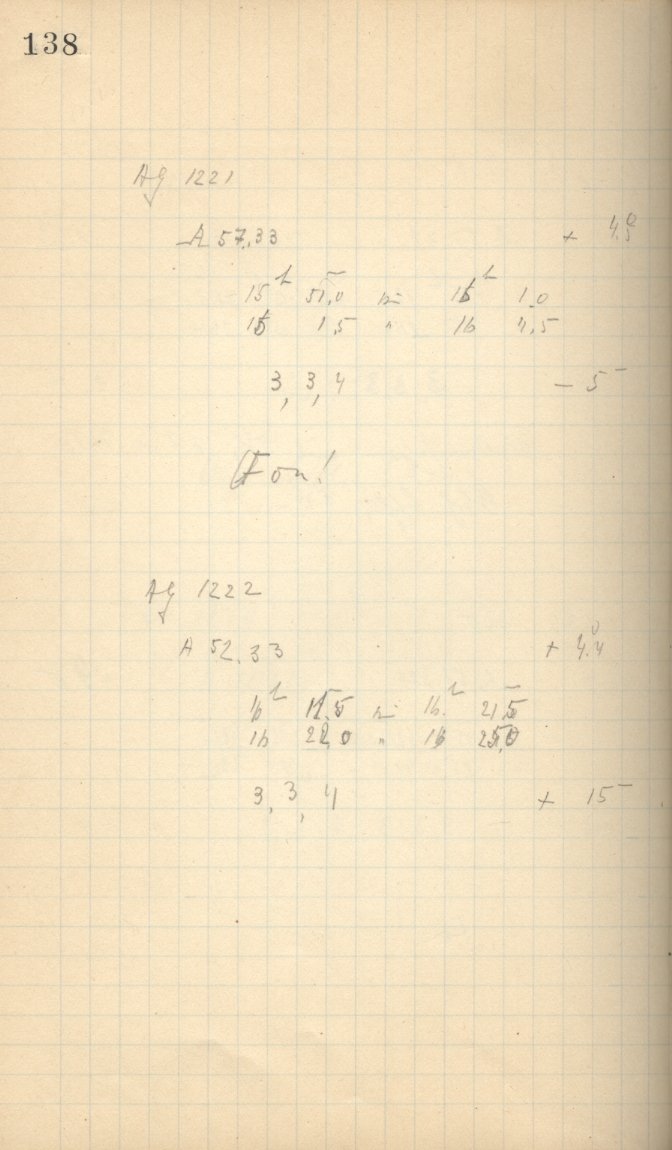 138
AG 1221
A 57.33 + 4.5°
15ʰ 51,0ᵐ 16ʰ 1,0
16 1,5 " 16 4,5
3, 3, 4 - 5ᵐ
Fon!
AG 1222
A 52.33 + 4.4°
16ʰ 11,5ᵐ 16ʰ 21,5ᵐ
16 22,0 " 16 25,0
3, 3, 4 + 15ᵐ